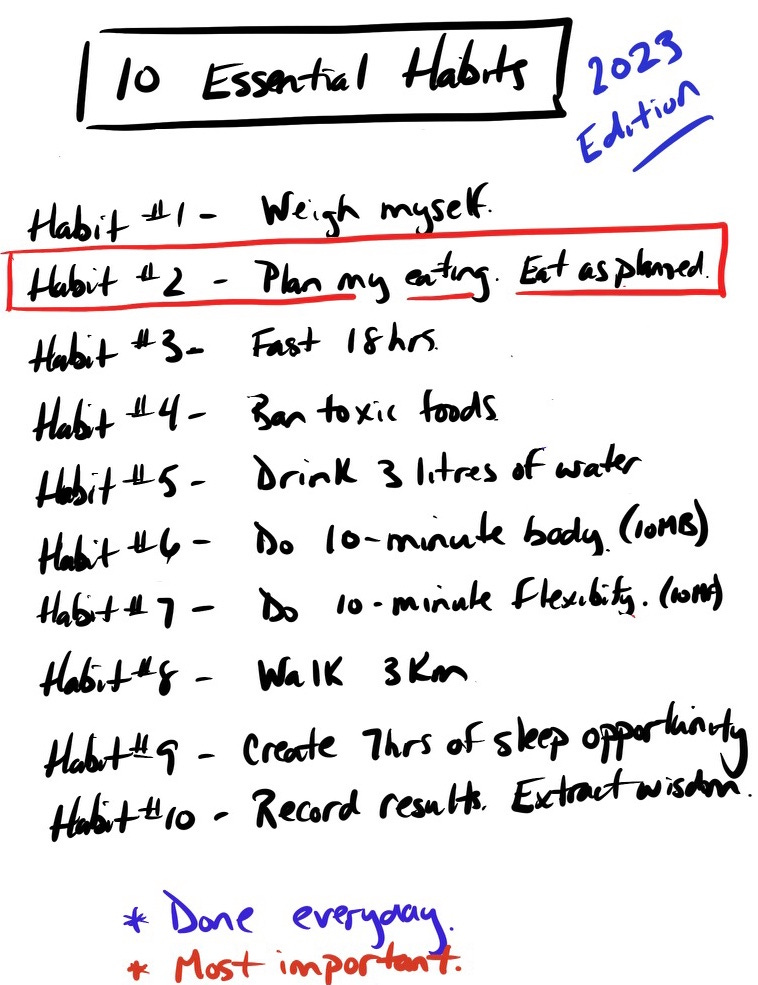 10 Essential Habits
2023
Edition
Habit #1 - Weigh myself.
Habit #2 - Plan my eating. Eat as planned.
Habit #3 - Fast 18hrs.
Habit #4 - Ban toxic foods
Habit #5 - Drink 3 litres of water
Habit #6 - Do 10-minute body. (10MB)
Habit #7 - Do 10-minute flexibity. (10MF)
Habit #8 - Walk 3km
Habit #9 - Create 7hrs of sleep opportunity
Habit #10 - Record results. Extract wisdom.
* Done everyday.
* Most important.